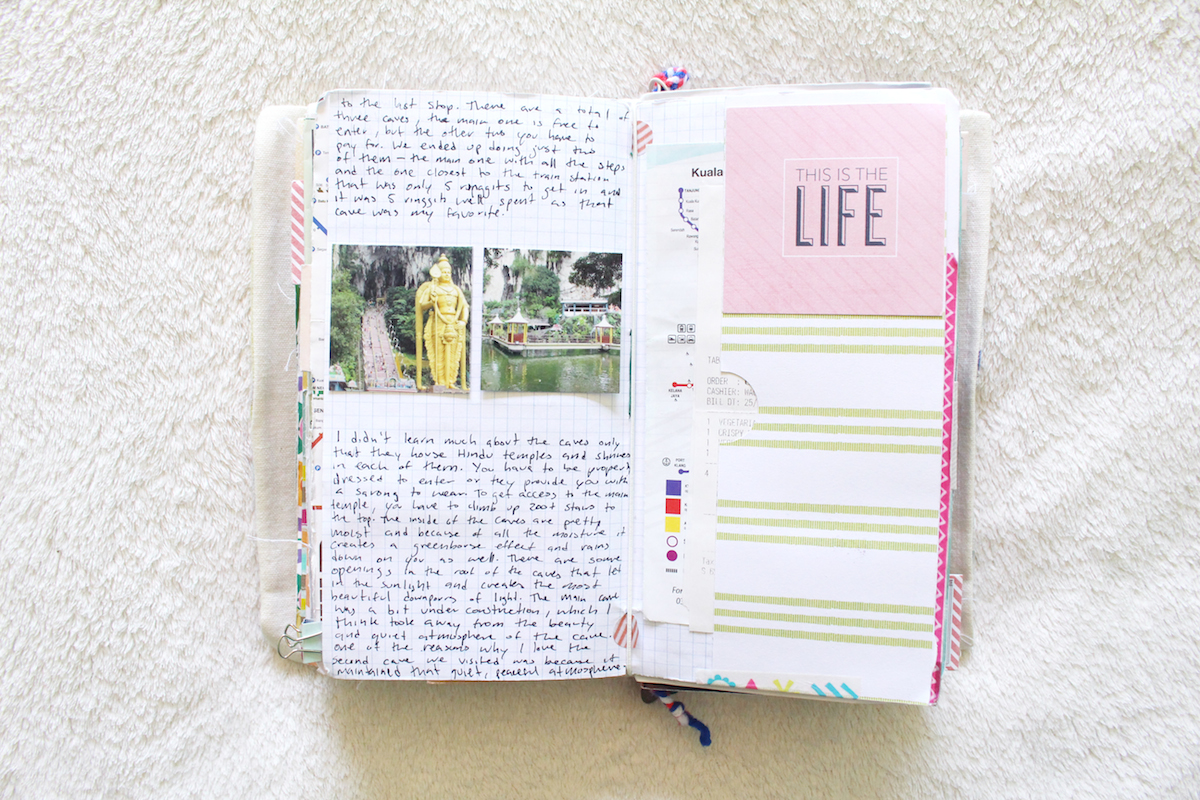 to the last stop. There are a total of
three caves, the main one is free to
enter, but the other two you have to
pay for. We ended up doing just two
of them – the main one with all the steps
and the one closest to the train station
that was only 5 ringgits to get in and
it was 5 ringgits well spent as that
cave was my favorite.
I didn't learn much about the caves only
that they house Hindu temples and shrines
in each of them. You have to be properly
dressed to enter or they provide you with
a sarong to wear. To get access to the main
temple, you have to climb up 200+ stairs to
the top. The inside of the caves are pretty
moist and because of all the moisture it
creates a greenhouse effect and rains
down on you as well. There are some
openings in the roof of the caves that let
in the sunlight and creates the most
beautiful downpours of light. The main cave
was a bit under construction, which I
think took away from the beauty
and quiet atmosphere of the cave.
one of the reasons why I love the
second cave we visited was because it
maintained that quiet, peaceful atmosphere.
Kuala
KELANA
JAYA
PORT
KLANG
For
TAB
ORDER :
CASHIER:
BILL DT: 25/
VEGETARI
CRISPY
4
THIS IS THE
LIFE